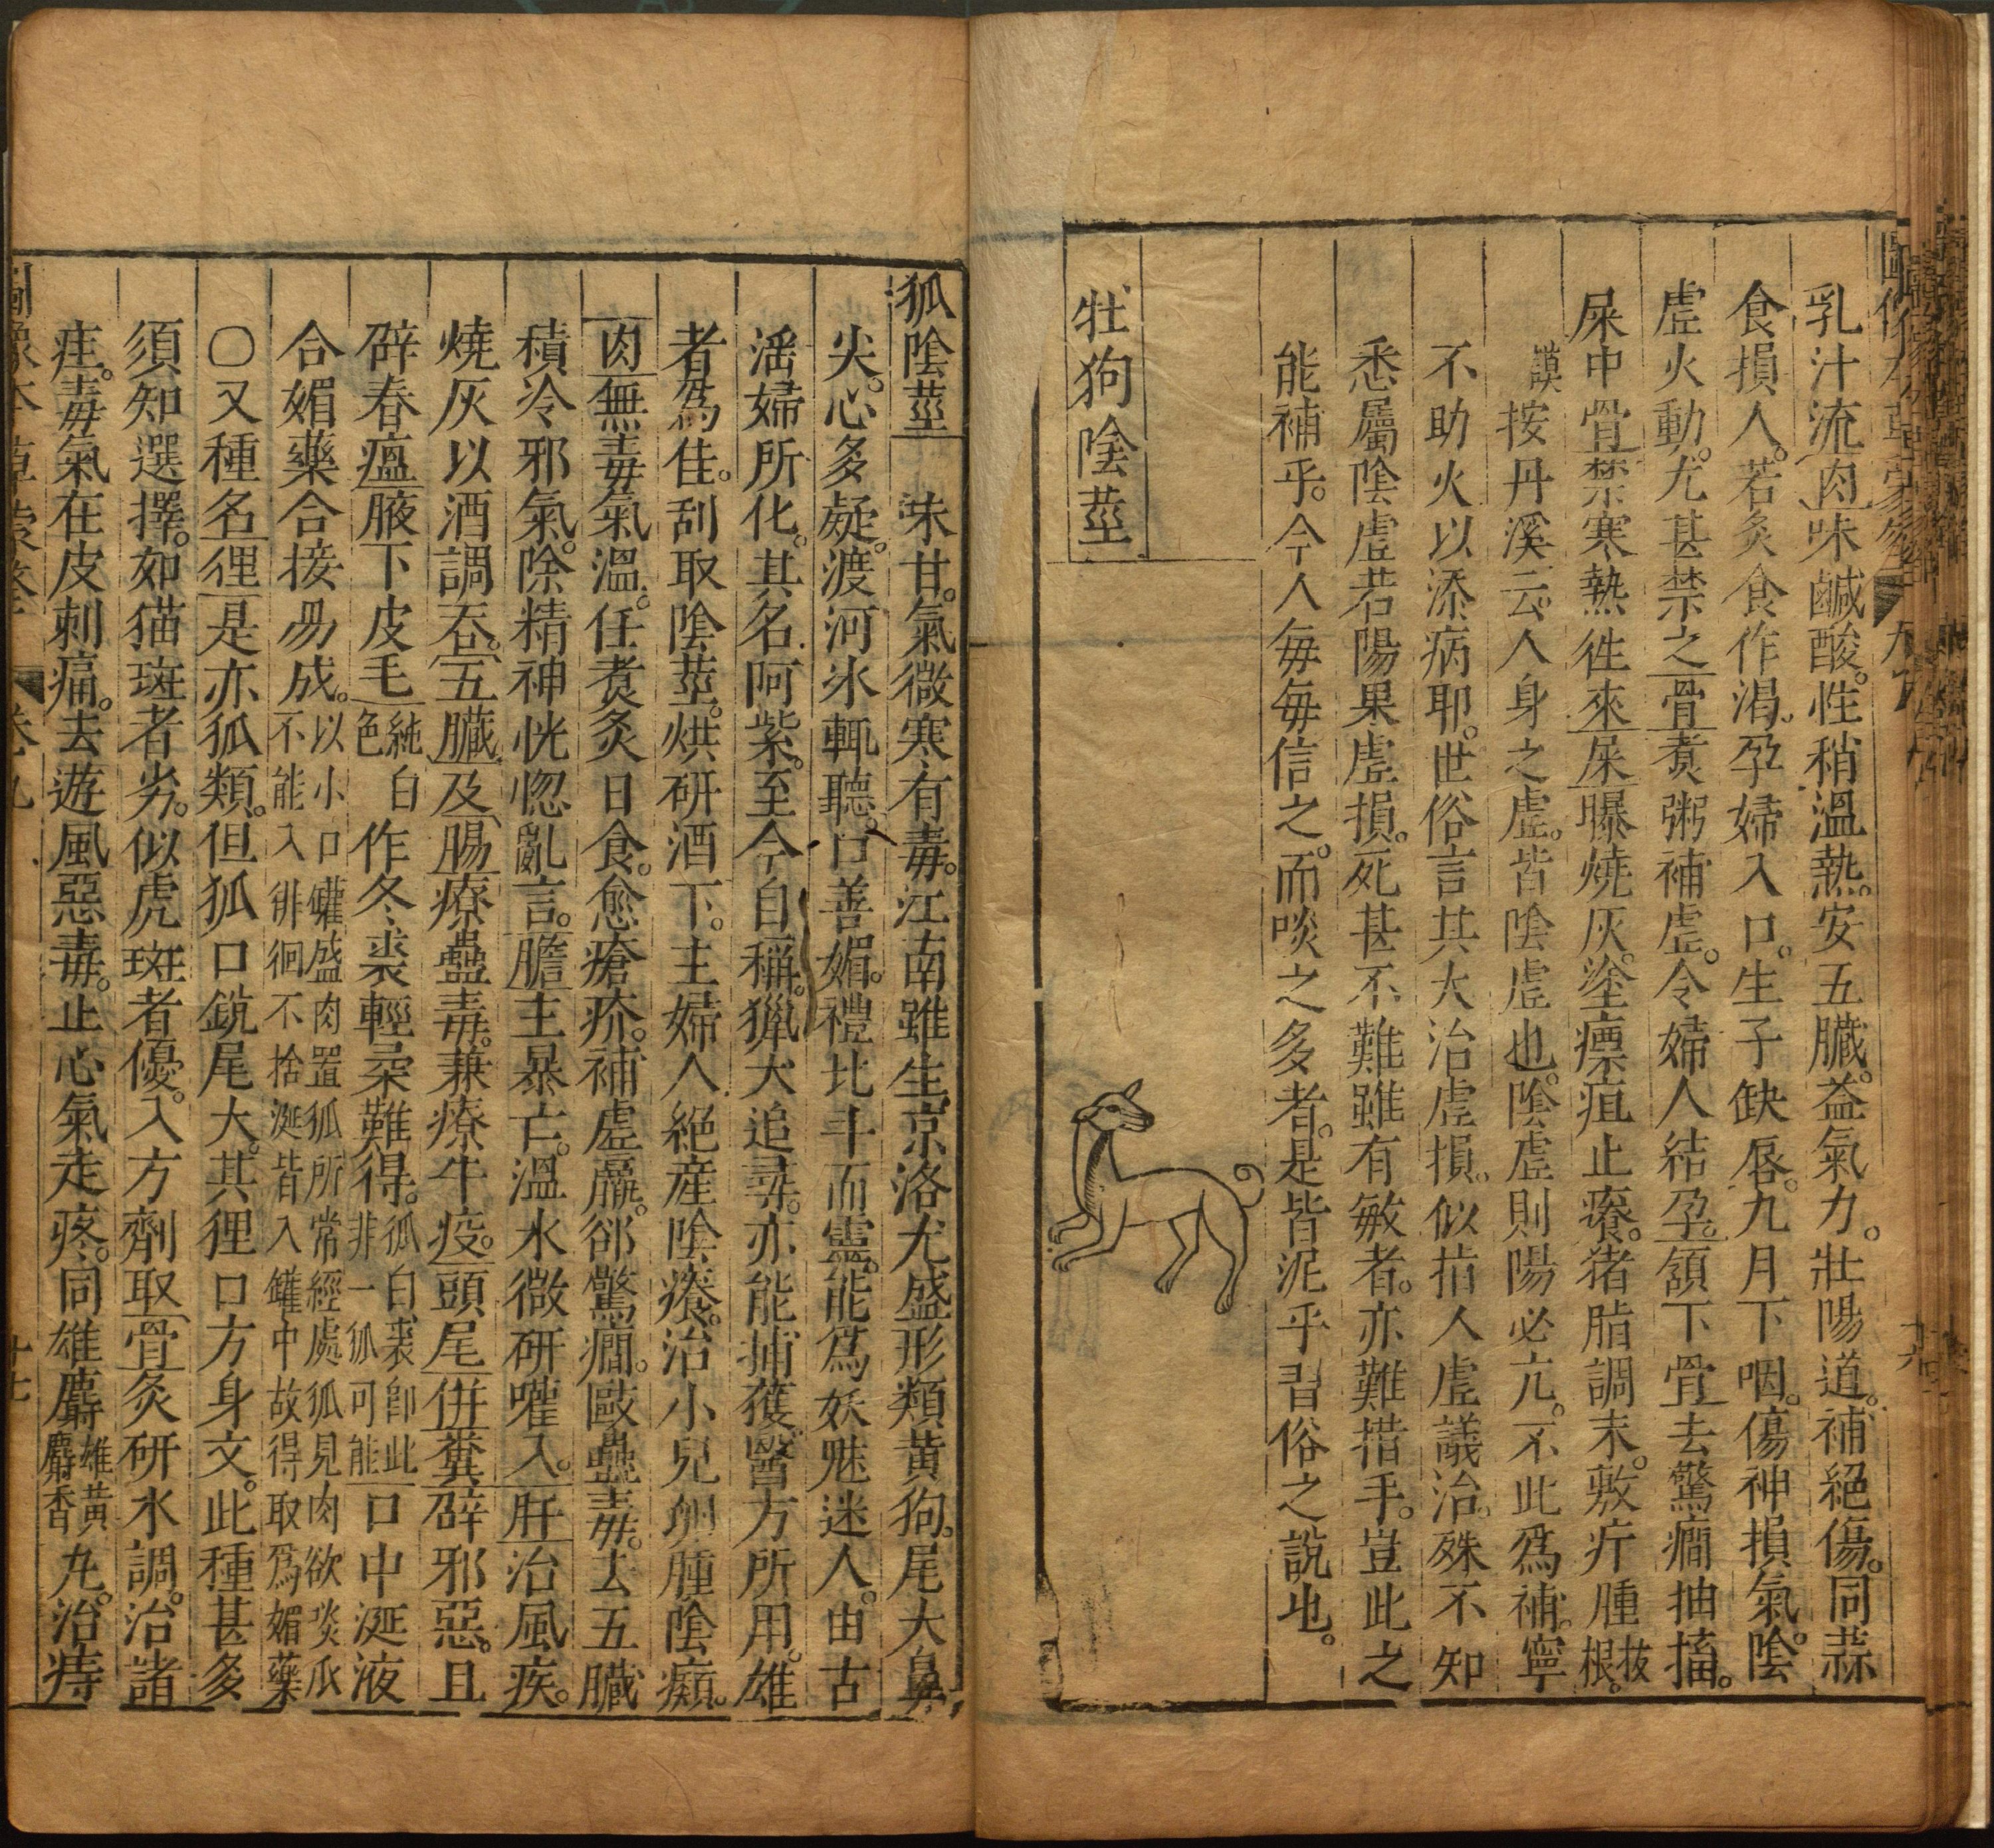 乳汁流肉味鹹酸。性稍溫熱。安五臟。益氣力。壯陽道。補絕傷。同蒜
食損人。若炙食作渴。孕婦入口。生子缺唇。九月下咽。傷神損氣。陰
虛火動。尤甚禁之骨煑粥補虛。令婦人結孕。頷下骨去驚癎抽搐。
屎中骨禁寒熱徃來屎曝燒灰。塗瘭疽止癢。猪脂調末。敷疔腫拔根。
謨按丹溪云。人身之虛。皆陰虛也。陰虛則陽必亢。不此爲補。寧
不助火以添病耶。世俗言其大治虛損。似指人虛議治。殊不知
悉屬陰虛若陽果虛損。死甚不難雖有敏者。亦難措手。豈此之
能補乎。今人每每信之。而啖之多者。是皆泥乎習俗之說也。
牡狗陰莖
狐陰莖 味甘。氣微寒有毒。江南雖生京洛尤盛形類黃狗。尾大鼻
尖。心多疑。渡河氷輒聽。口善媚。禮北斗而靈。能爲妖魅迷人。由古
滛婦所化。其名阿紫。至今自稱。獵犬追尋。亦能捕獲。醫方所用。雄
者爲佳。刮取陰莖。烘研酒下。主婦人絕産陰癢。治小兒卵腫陰㿗。
肉無毒氣溫。任煑炙日食。愈瘡疥。補虛羸。郤驚癎。毆蠱毒。去五臟
積冷邪氣。除精神恍惚亂言。膽主暴亡。溫水微研嚾入。肝治風疾。
燒灰以酒調吞。五臟及腸療蠱毒。兼療牛疫。頭尾併糞辟邪惡。且
辟春瘟腋下皮毛純白色作冬裘輕柔難得。狐白裘卽此非一狐可能口中涎液
合媚藥合接易成。以小口罐盛肉置狐所常經處狐見肉欲啖爪不能入徘徊不捨涎皆入罐中故得取爲媚藥
〇又種名狸是亦狐類。但狐口銳尾大。其狸口方身文。此種甚多
須知選擇。如猫斑者劣。似虎斑者優。入方劑取骨炙研水調。治諸
疰。毒氣在皮刺痛。去遊風惡毒。止心氣走疼。同雄麝雄黃麝香丸。治痔
卷九